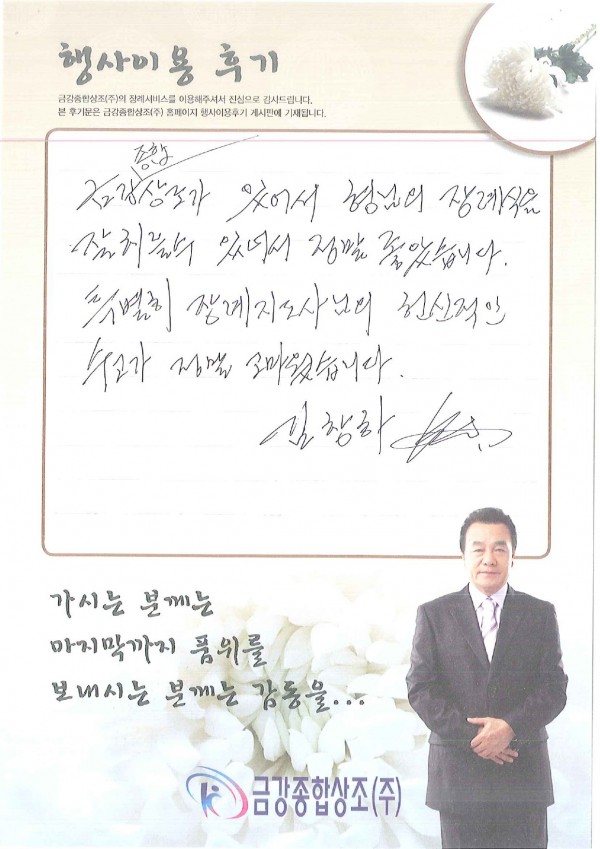 행사이용 후기
금강종합상조(주)의 장례서비스를 이용해주셔서 진심으로 감사드립니다.
본 후기분은 금강종합상조(주) 홈페이지 행사이용후기 게시판에 기재됩니다.
종합
금강상조가 있어서 형님의 장례식을
잘 치를수 있어서 정말 좋았습니다.
특별히 장례지도사님의 헌신적인
수고가 정말 고마웠습니다.
김창하
가시는 분께는
마지막까지 품위를
보내시는 분께는 감동을...
금강종합상조(주)